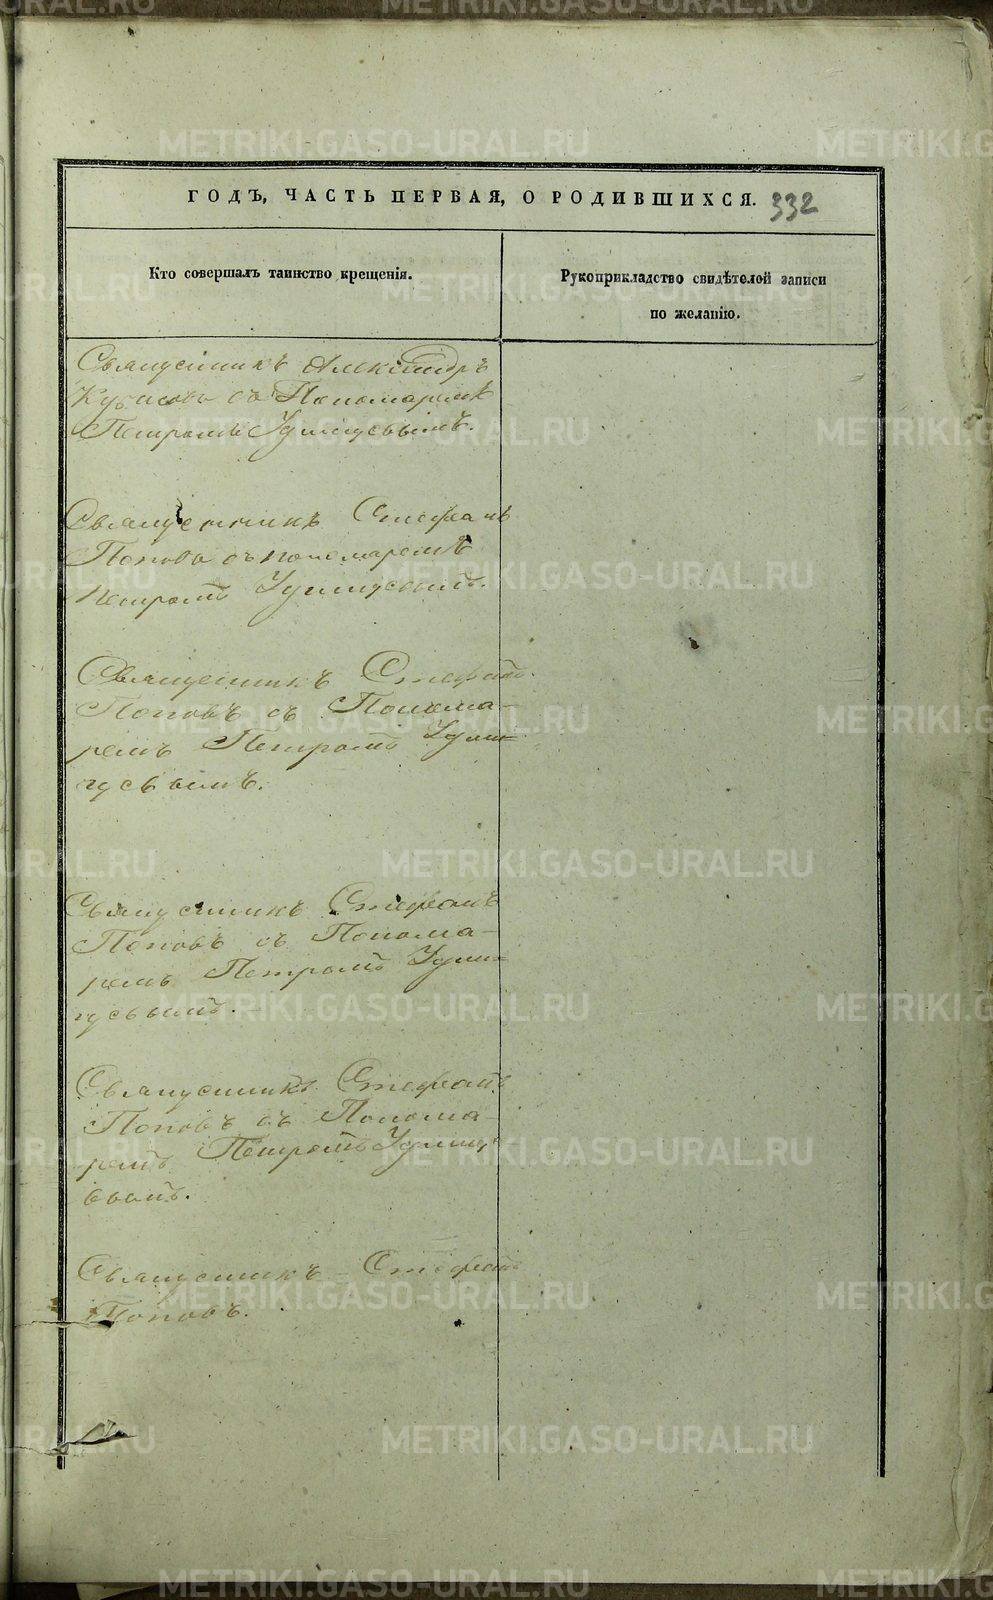 METRIKI.GASO-URAL.RU
ГОДЪ, ЧАСТЬ ПЕРВАЯ, О РОДИВШИХСЯ. 332
Кто совершалъ таинство крещенія.
Рукоприкладство свидѣтелей записи
по желанію.
Священникъ Александръ
съ Пономаремъ
Петромъ
Священникъ Стефанъ
Поповъ съ пономаремъ
Петромъ
Священникъ Стефанъ
Поповъ съ Понома-
ремъ Петромъ
Священникъ Стефанъ
Поповъ съ Понома-
ремъ Петромъ
Священникъ Стефанъ
Поповъ съ Понома-
ремъ Петромъ
Священникъ Стефанъ
Поповъ.